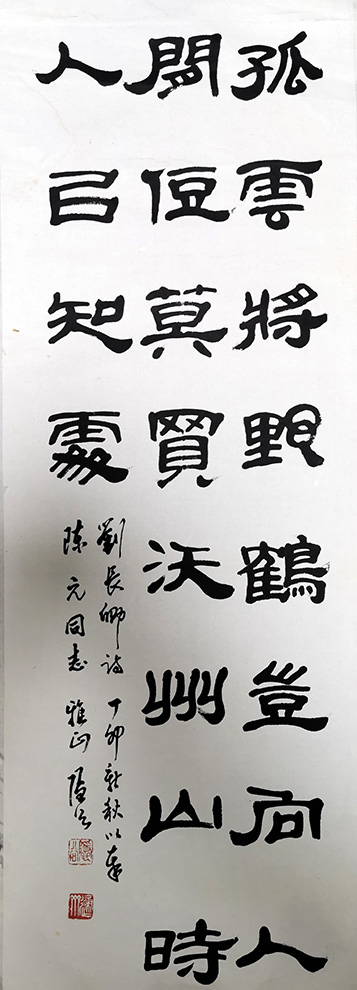 孤雲將野鶴豈向人
間住莫買沃州山時
人已知處
劉長卿詩 丁卯新秋以奉
陳元同志 雅正